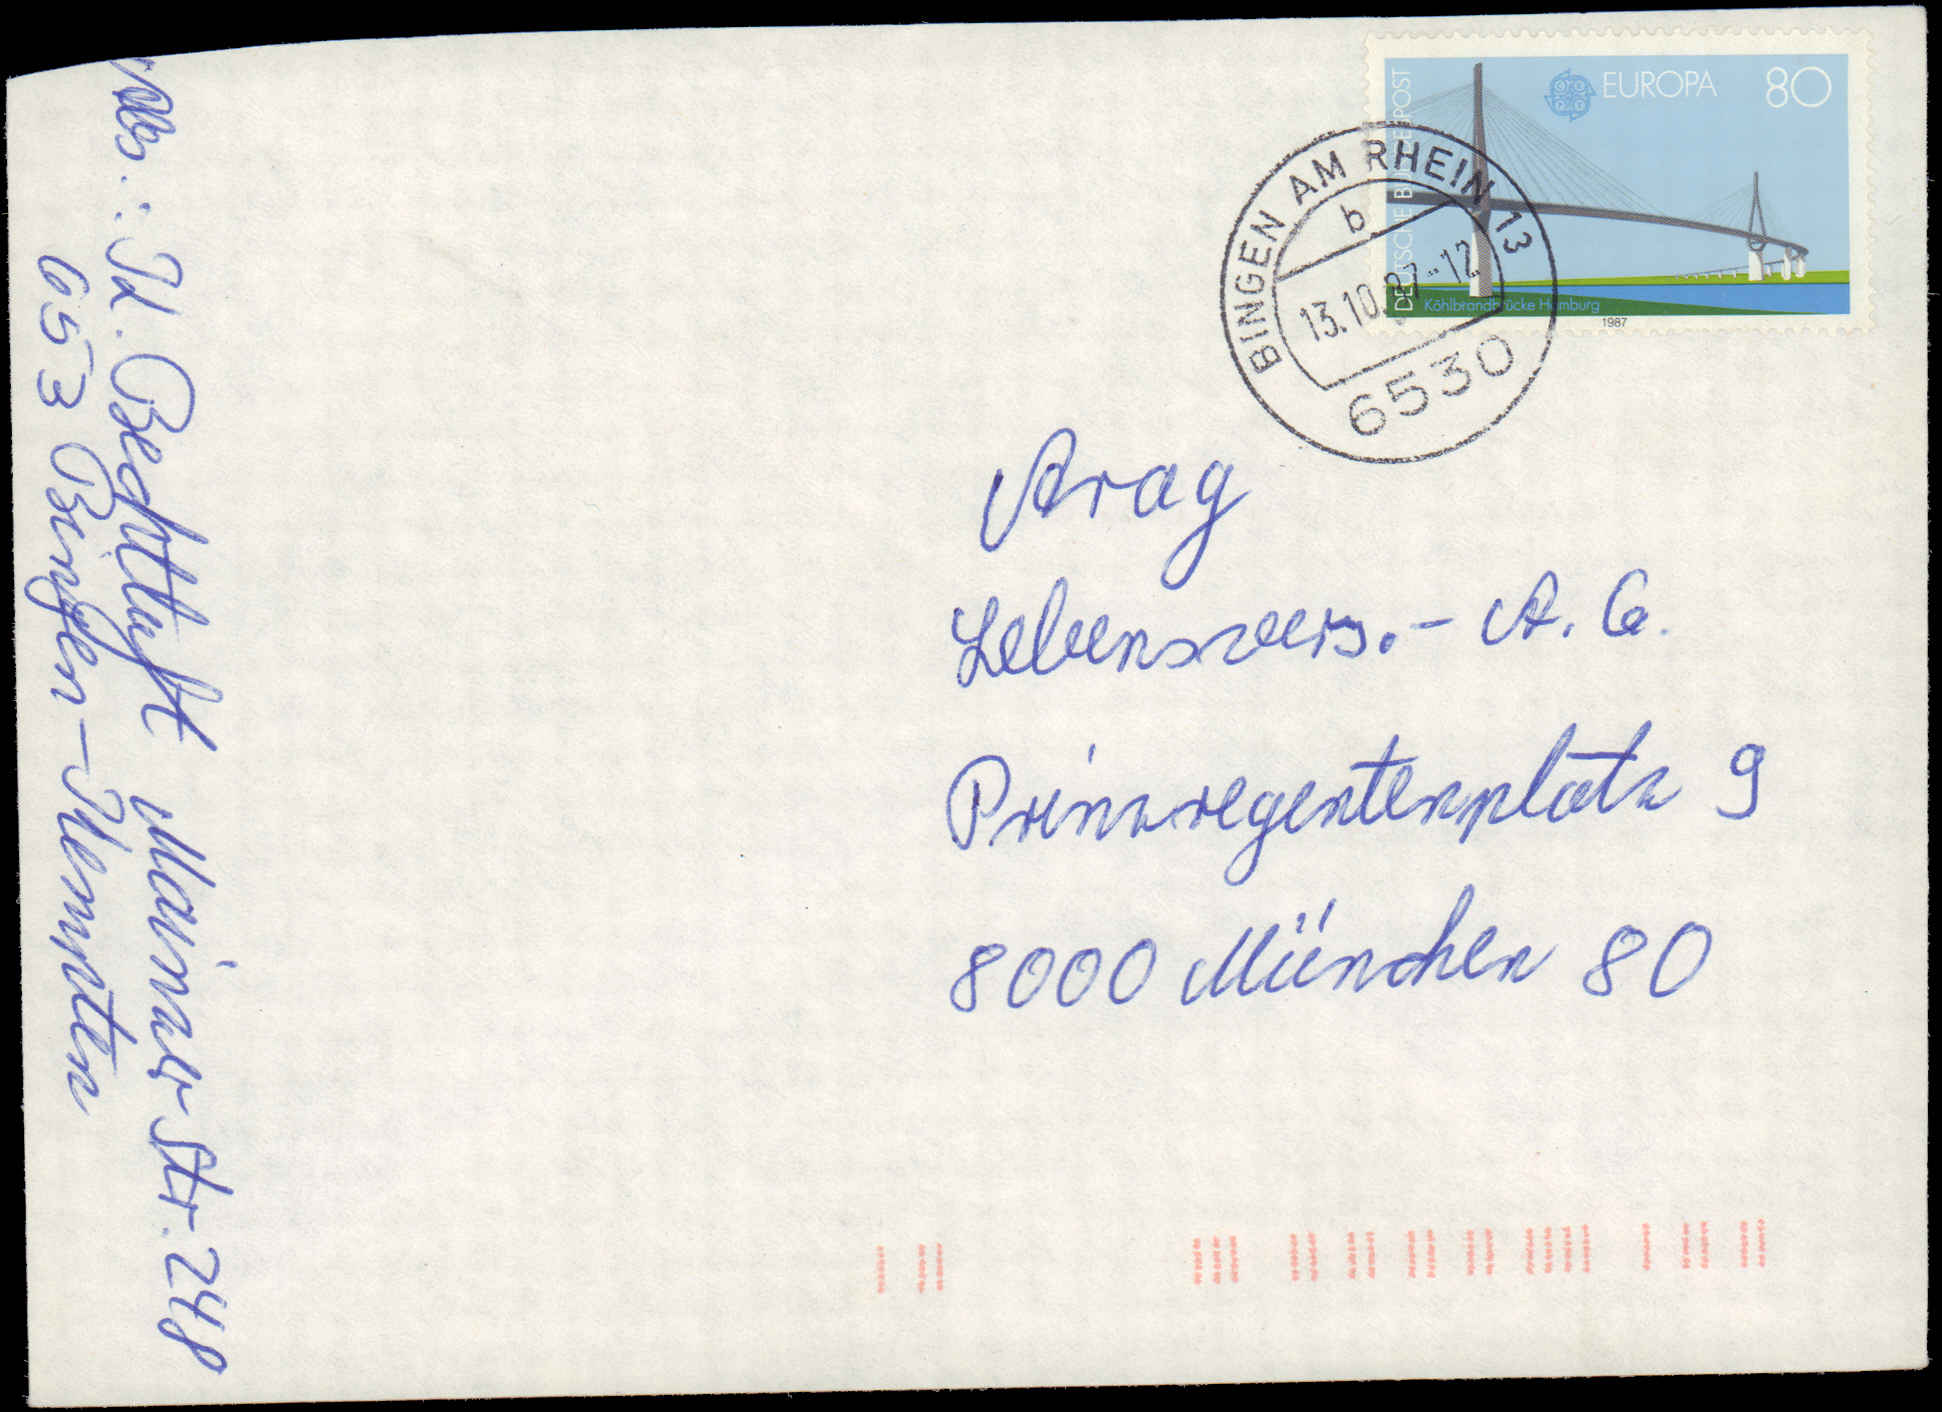 EUROPA 80
DEUTSCHE BUNDESPOST
Köhlbrandbrücke Hamburg
1987
BINGEN AM RHEIN 13
b
13.10.87-12
6530
Arag
Lebensvers.- A.G.
Prinzregentenplatz 9
8000 München 80
Abs.: Id. Bechtluft Mainzer Str. 248
653 Bingen-Kempten